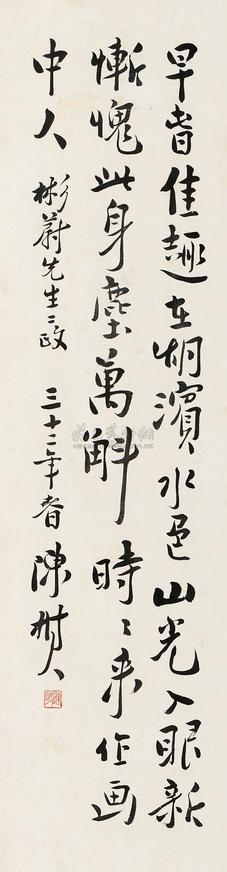 早春佳趣在湖濱水色山光入眼新
慚愧此身塵萬斛時々来作画
中人 彬蔚先生政 三十二年春 陳樹人